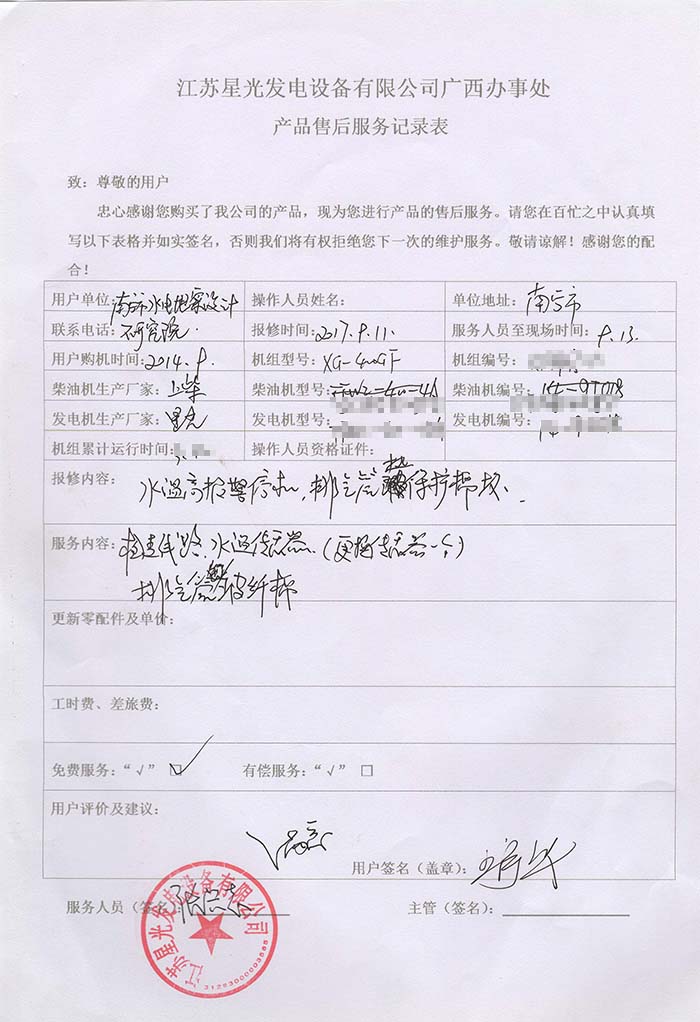 江苏星光发电设备有限公司广西办事处
产品售后服务记录表
致：尊敬的用户
忠心感谢您购买了我公司的产品，现为您进行产品的售后服务。请您在百忙之中认真填
写以下表格并如实签名，否则我们将有权拒绝您下一次的维护服务。敬请谅解！感谢您的配
合！
用户单位：南宁市水电地 设计 操作人员姓名： 单位地址：南宁市
联系电话：研究院. 报修时间：2017.9.11. 服务人员至现场时间：9.13.
用户购机时间：2014.9. 机组型号：XG-400GF 机组编号：
柴油机生产厂家：上柴 柴油机型号： 柴油机编号：
发电机生产厂家：星光 发电机型号： 发电机编号：
机组累计运行时间： 操作人员资格证件：
报修内容：水温高报警停机，排气管 保护棉
服务内容：检查线路、水温传感器.（更换传感器一个）
排气管 纤棉
更新零配件及单价：
工时费、差旅费：
免费服务：“√” ☑ 有偿服务：“√” □
用户评价及建议：
用户签名（盖章）：
服务人员（签名）： 主管（签名）：
江苏星光发电设备有限公司